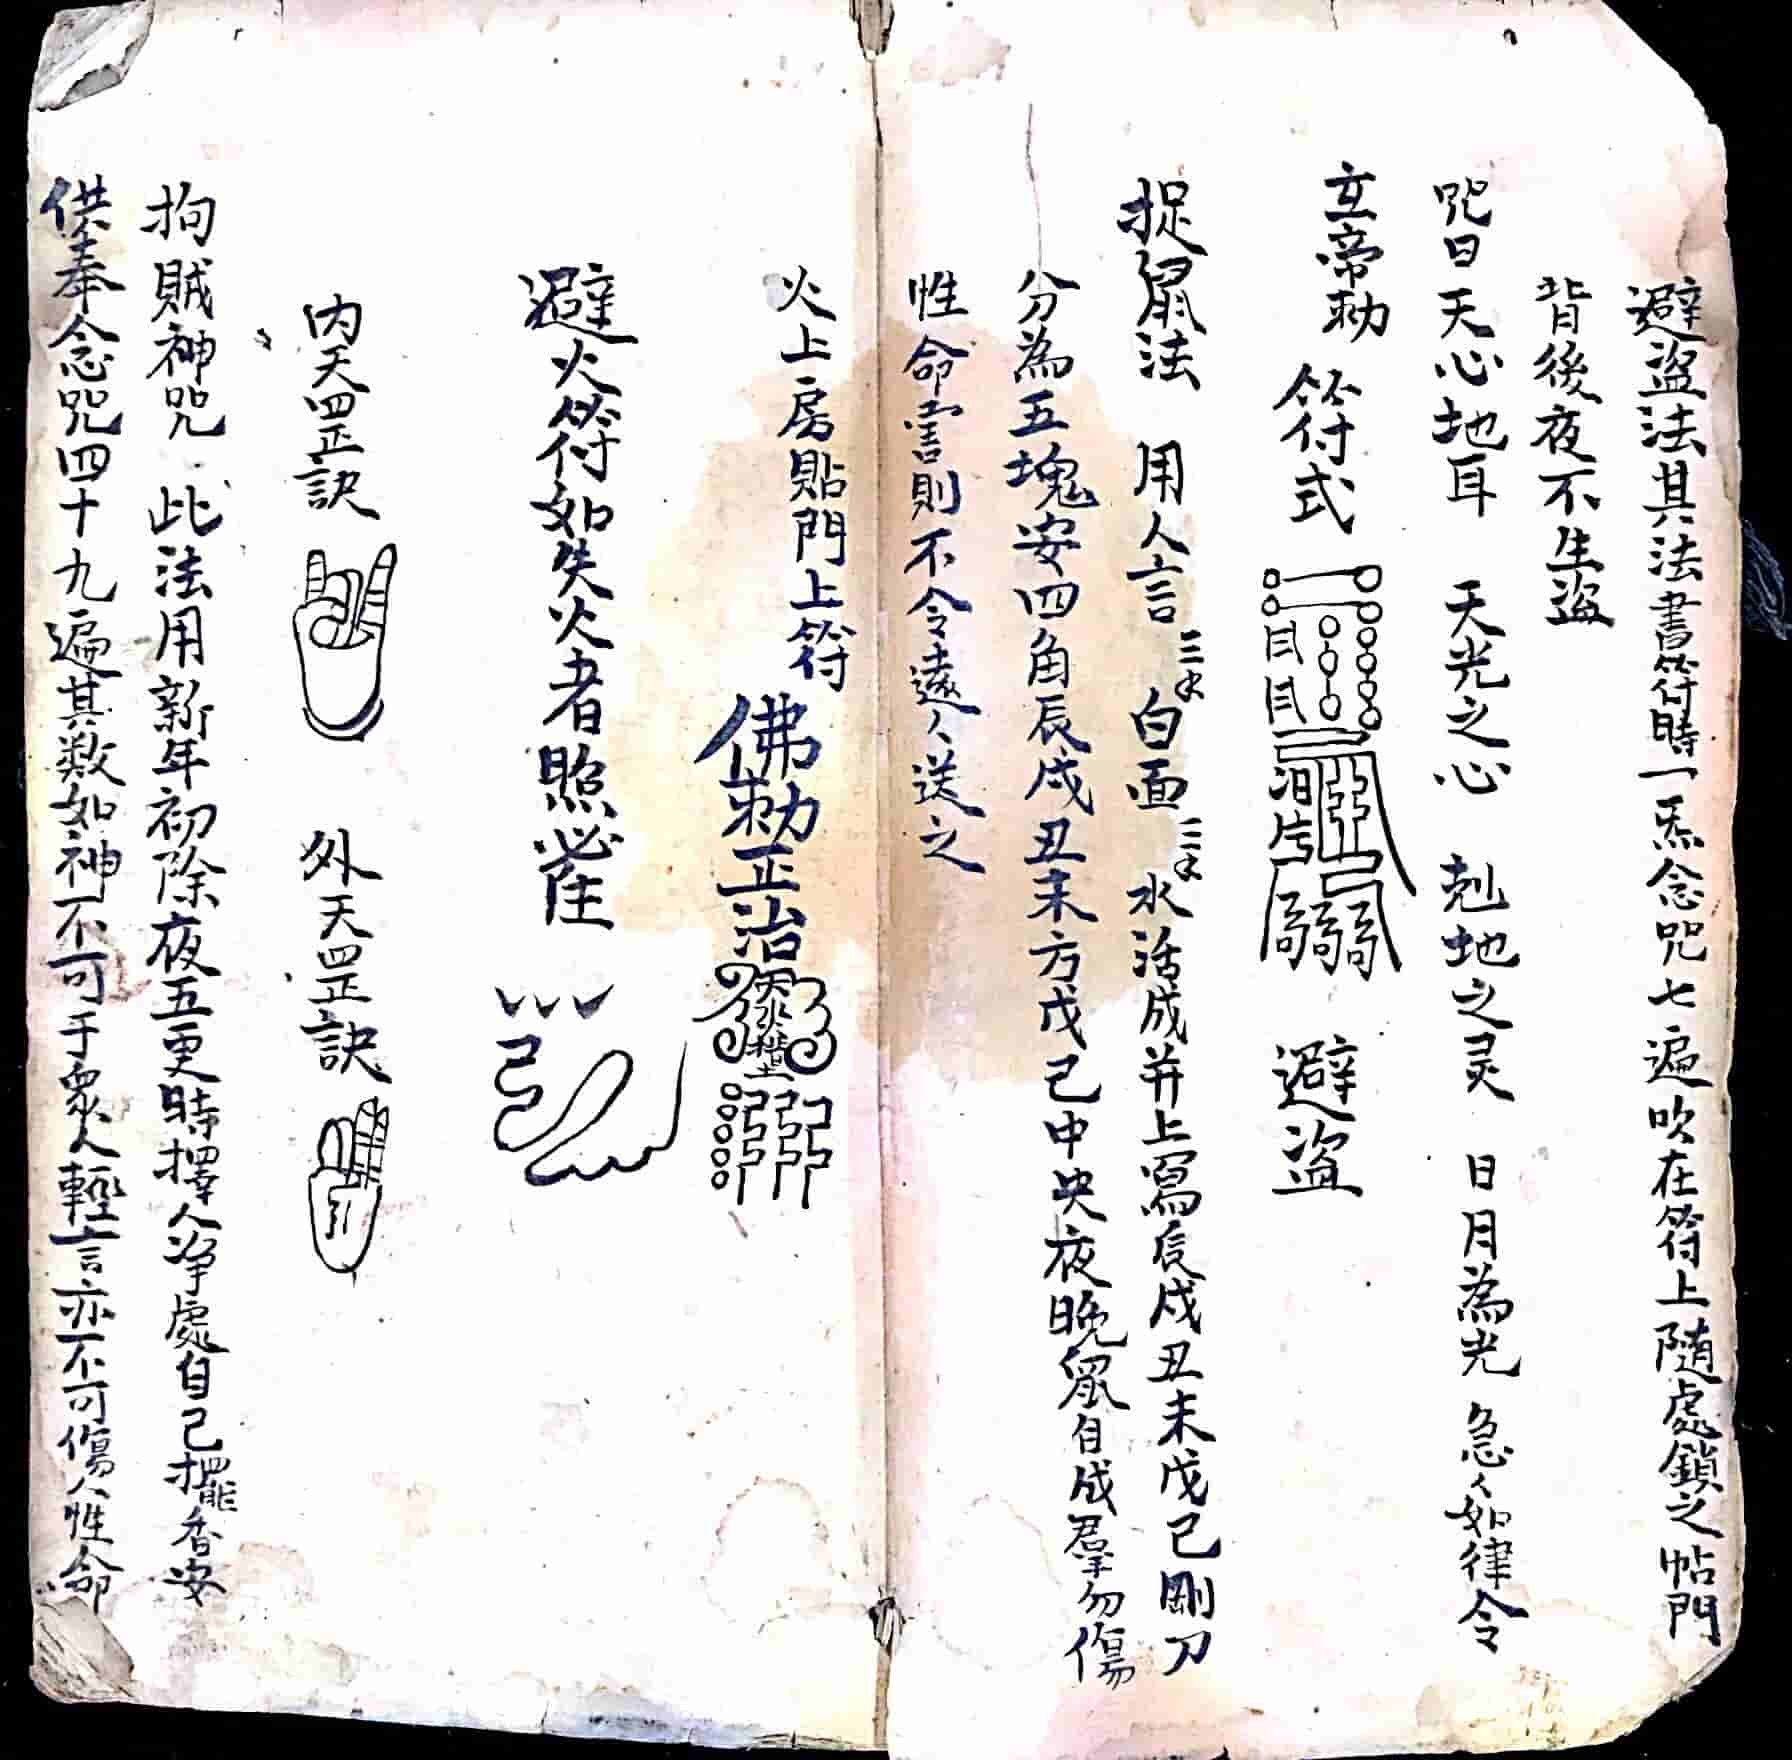 避盗法其法書符時一炁念咒七遍吹在符上隨處鎖之帖門
背後夜不生盗
咒曰天心地耳 天光之心 尅地之灵 日月為光 急〻如律令
玄帝勅 符式 避盗
捉鼠法 用人言 三 白面 二 水活成并上寫辰戍丑未戊己剛刀
分為五塊安四角辰戍丑未方戊己中央夜晚鼠自成羣勿傷
性命害則不令遠〻送之
火上房貼門上符 佛勅正治
避火符如失火者照
内天罡訣 外天罡訣
拘賊神咒 此法用新年初除夜五更時擇人净處自己擺香安
供奉念咒四十九遍其数如神不可于衆人輕言亦不可傷人性命